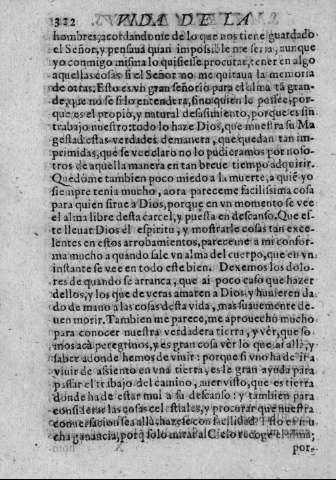 322 VIDA DE LA
hombres, acordandome de lo que nos tiene guardado
el Señor, y pensaua quan impossible me seria, aunque
yo conmigo misma lo quisiesse procurar, tener en algo
aquellas cosas si el Señor no me quitaua la memoria
de otras. Esto es vn gran señorio para el alma tã gran-
de, que no se si lo entendera, sino quien lo possee; por-
que es el propio, y natural desasimiento, porque es sin
trabajo nuestro: todo lo haze Dios, que muestra su Ma
gestad estas verdades de manera, que quedan tan im-
primidas, que se vee claro no lo pudieramos por noso-
tros de aquella manera en tan breue tiempo adquirir.
Quedòme tambien poco miedo a la muerte, a quiẽ yo
siempre tenia mucho, aora pareceme facilissima cosa
para quien sirue a Dios, porque en vn momento se vee
el alma libre desta carcel, y puesta en descanso. Que es-
te lleuar Dios el espiritu, y mostrarle cosas tan exce-
lentes en estos arrobamientos, pareceme a mi confor-
ma mucho a quando sale vn alma del cuerpo, que en vn
instante se vee en todo este bien. Dexemos los dolo-
res de quando se arranca, que ai poco caso que hazer
dellos, y los que de veras amaren a Dios, y huuieren da
do de mano a las cosas desta vida, mas suauemente de-
uen morir. Tambien me parece, me aprouechò mucho
para conocer nuestra verdadera tierra, y vèr, que so-
mos acà peregrinos, y es gran cosa vèr lo que ai allà, y
saber adonde hemos de viuir: porque si vno ha de ir a
viuir de assiento en vna tierra, es le gran ayuda para
passar el trabajo del camino, auer visto, que es tierra
donde ha de estar mui a su descanso: y tambien para
considerar las cosas celestiales, y procurar que nuestra
conuersacion sea allà, hazese con facilidad. Esto es mu
cha ganancia, porq̃ solo mirar al Cielo recoge el alma;
por-